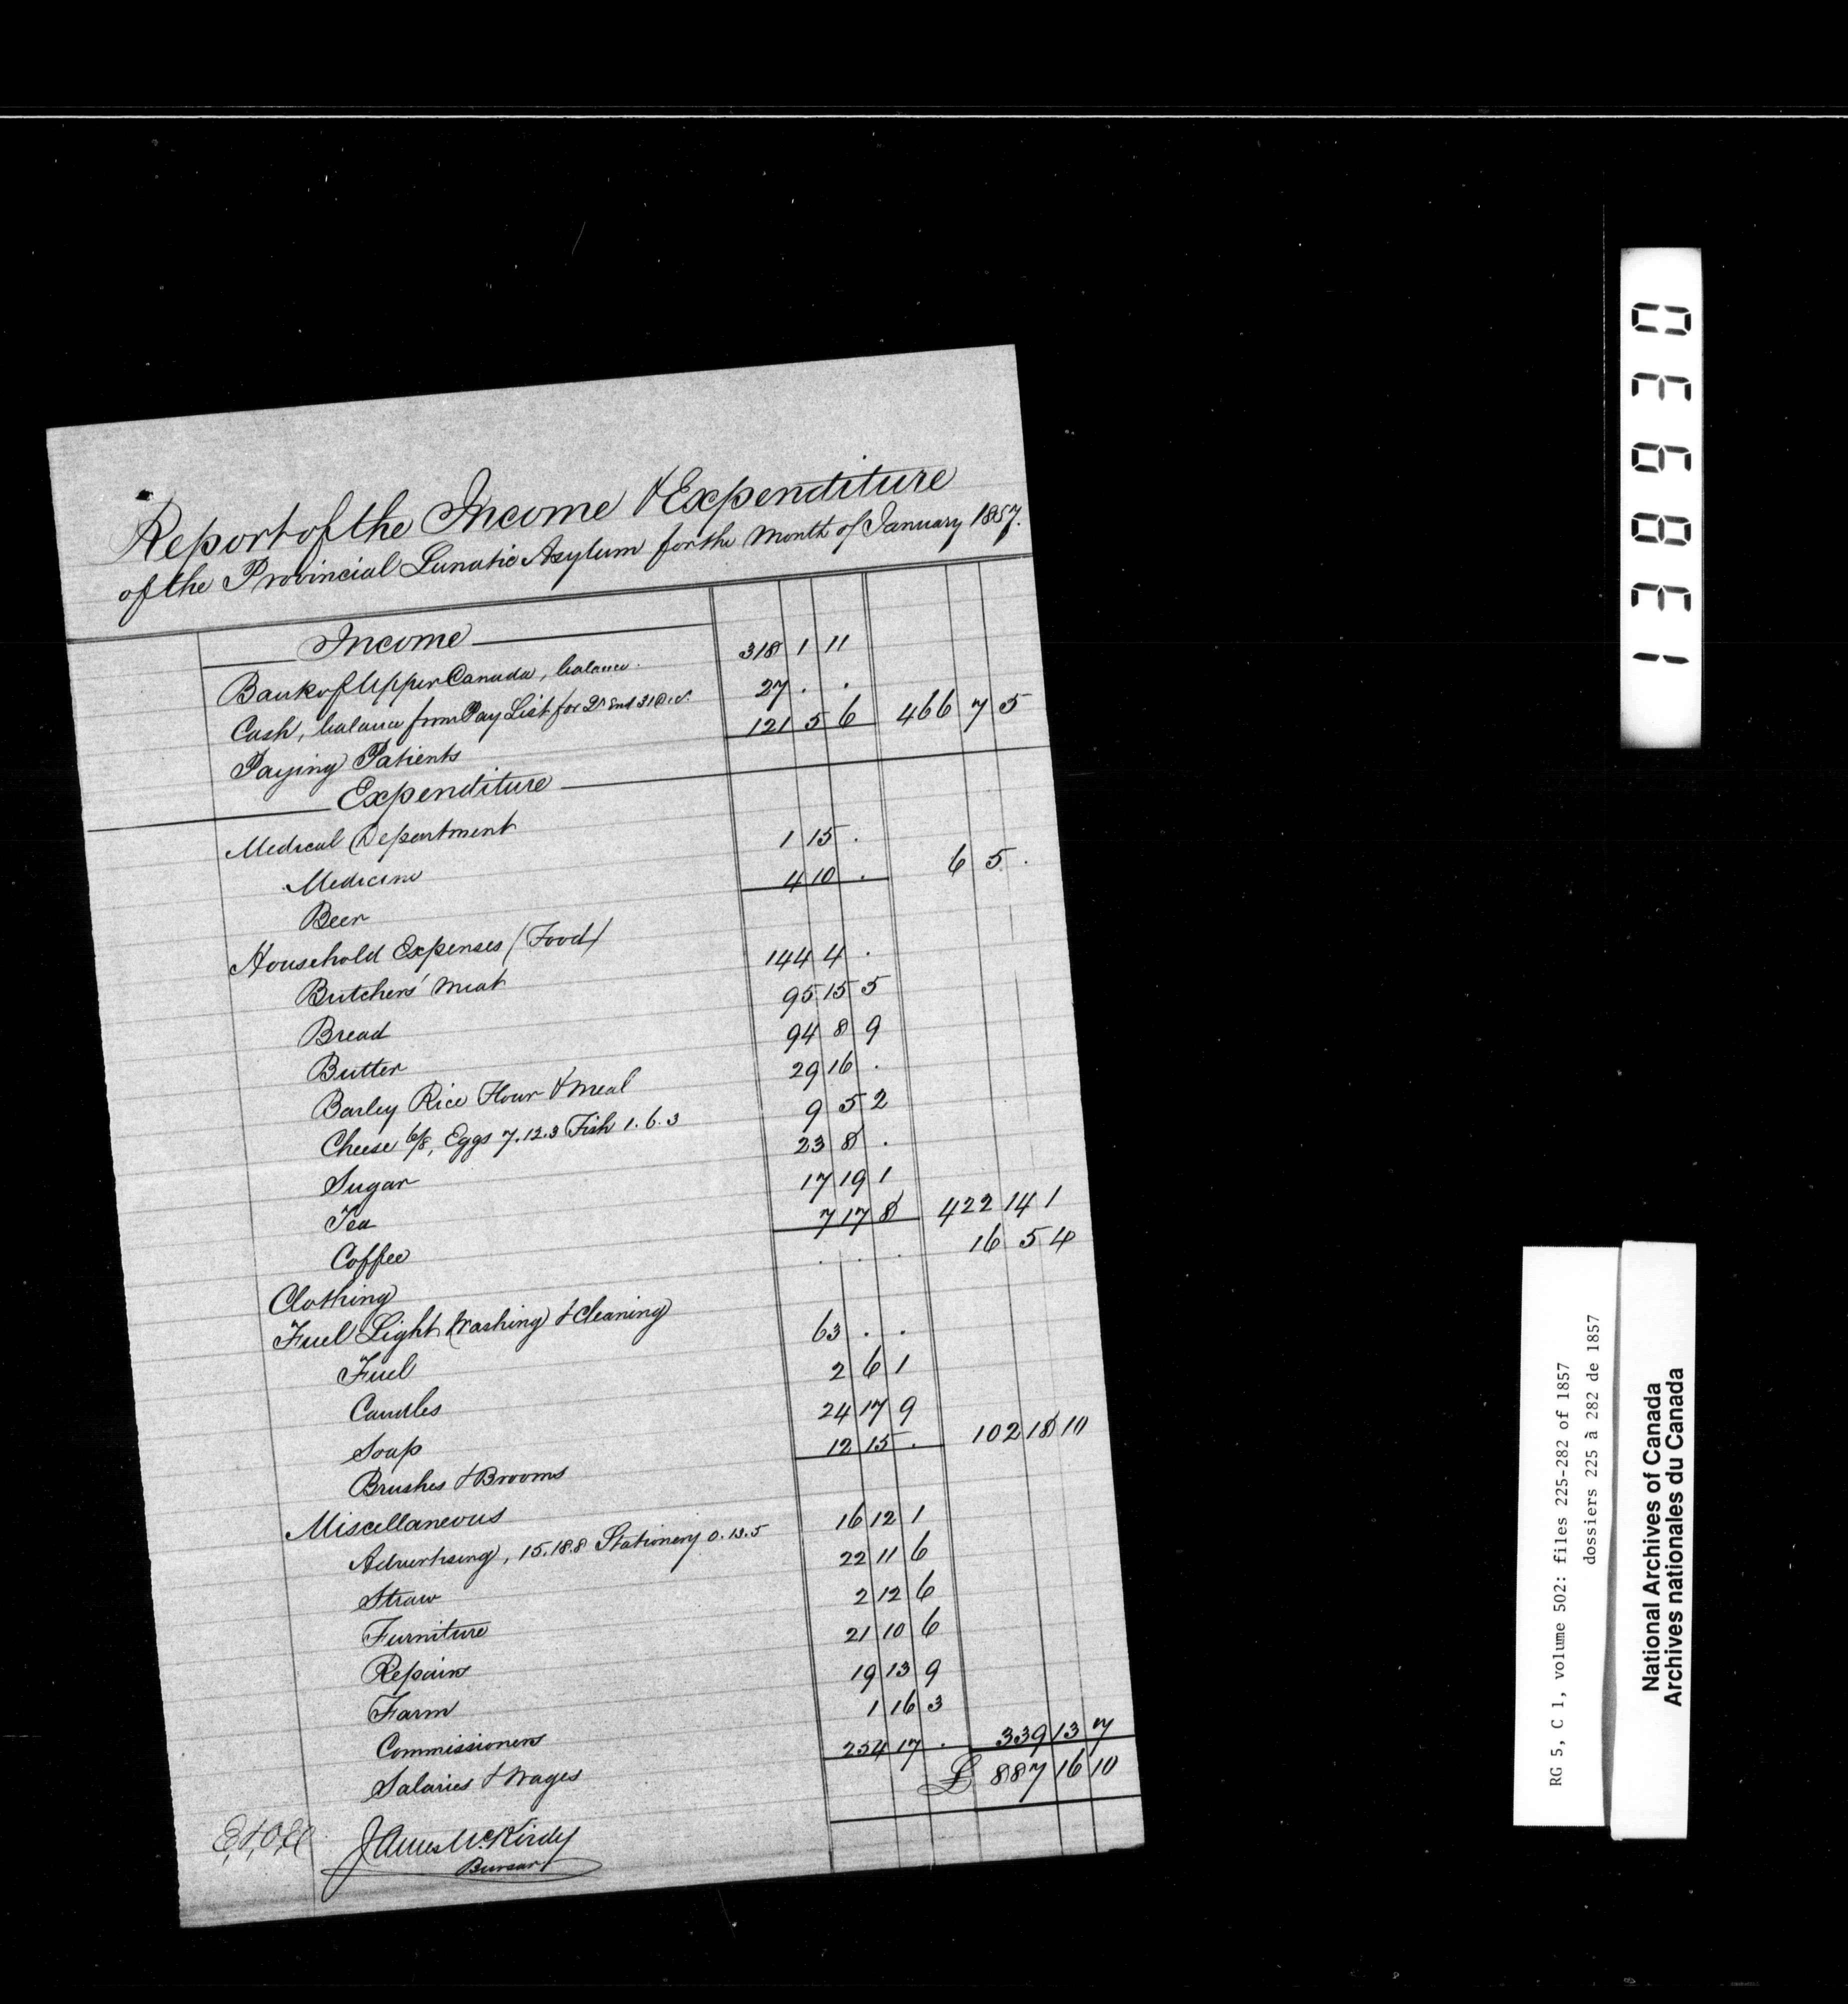 Report of the Income & Expenditure
of the Provincial Lunatic Asylum for the Month of January 1857.
Income
Bank of Upper Canada, balance. 318 1 11
Cash, balance from Pay List for 27 . .
Paying Patients 121 5 6 466 7 5
Expenditure
Medical Department
Medicine 1 15 .
Beer 4 10 . 6 5 .
Household Expenses (Food)
Butchers' Meat 144 4 .
Bread 95 15 5
Butter 94 8 9
Barley Rice Flour & Meal 29 16 .
Cheese 6/8, Eggs 7.12.3 Fish 1.6.3 9 5 2
Sugar 23 8 .
Tea 17 19 1
Coffee 7 17 8 422 14 1
Clothing . . . 16 5 4
Fuel Light Washing & Cleaning
Fuel 63 . .
Candles 2 6 1
Soap 24 17 9
Brushes & Brooms 12 15 . 102 18 10
Miscellaneous
Advertising, 15.18.8 Stationery 0.13.5 16 12 1
Straw 22 11 6
Furniture 2 12 6
Repairs 21 10 6
Farm 19 13 9
Commissioners 1 16 3
Salaries & Wages 254 17 . 339 13 7
£ 887 16 10
E, & O, E
James McKirdy
Bursar
138930
RG 5, C 1, volume 502: files 225-282 of 1857
dossiers 225 à 282 de 1857
National Archives of Canada
Archives nationales du Canada